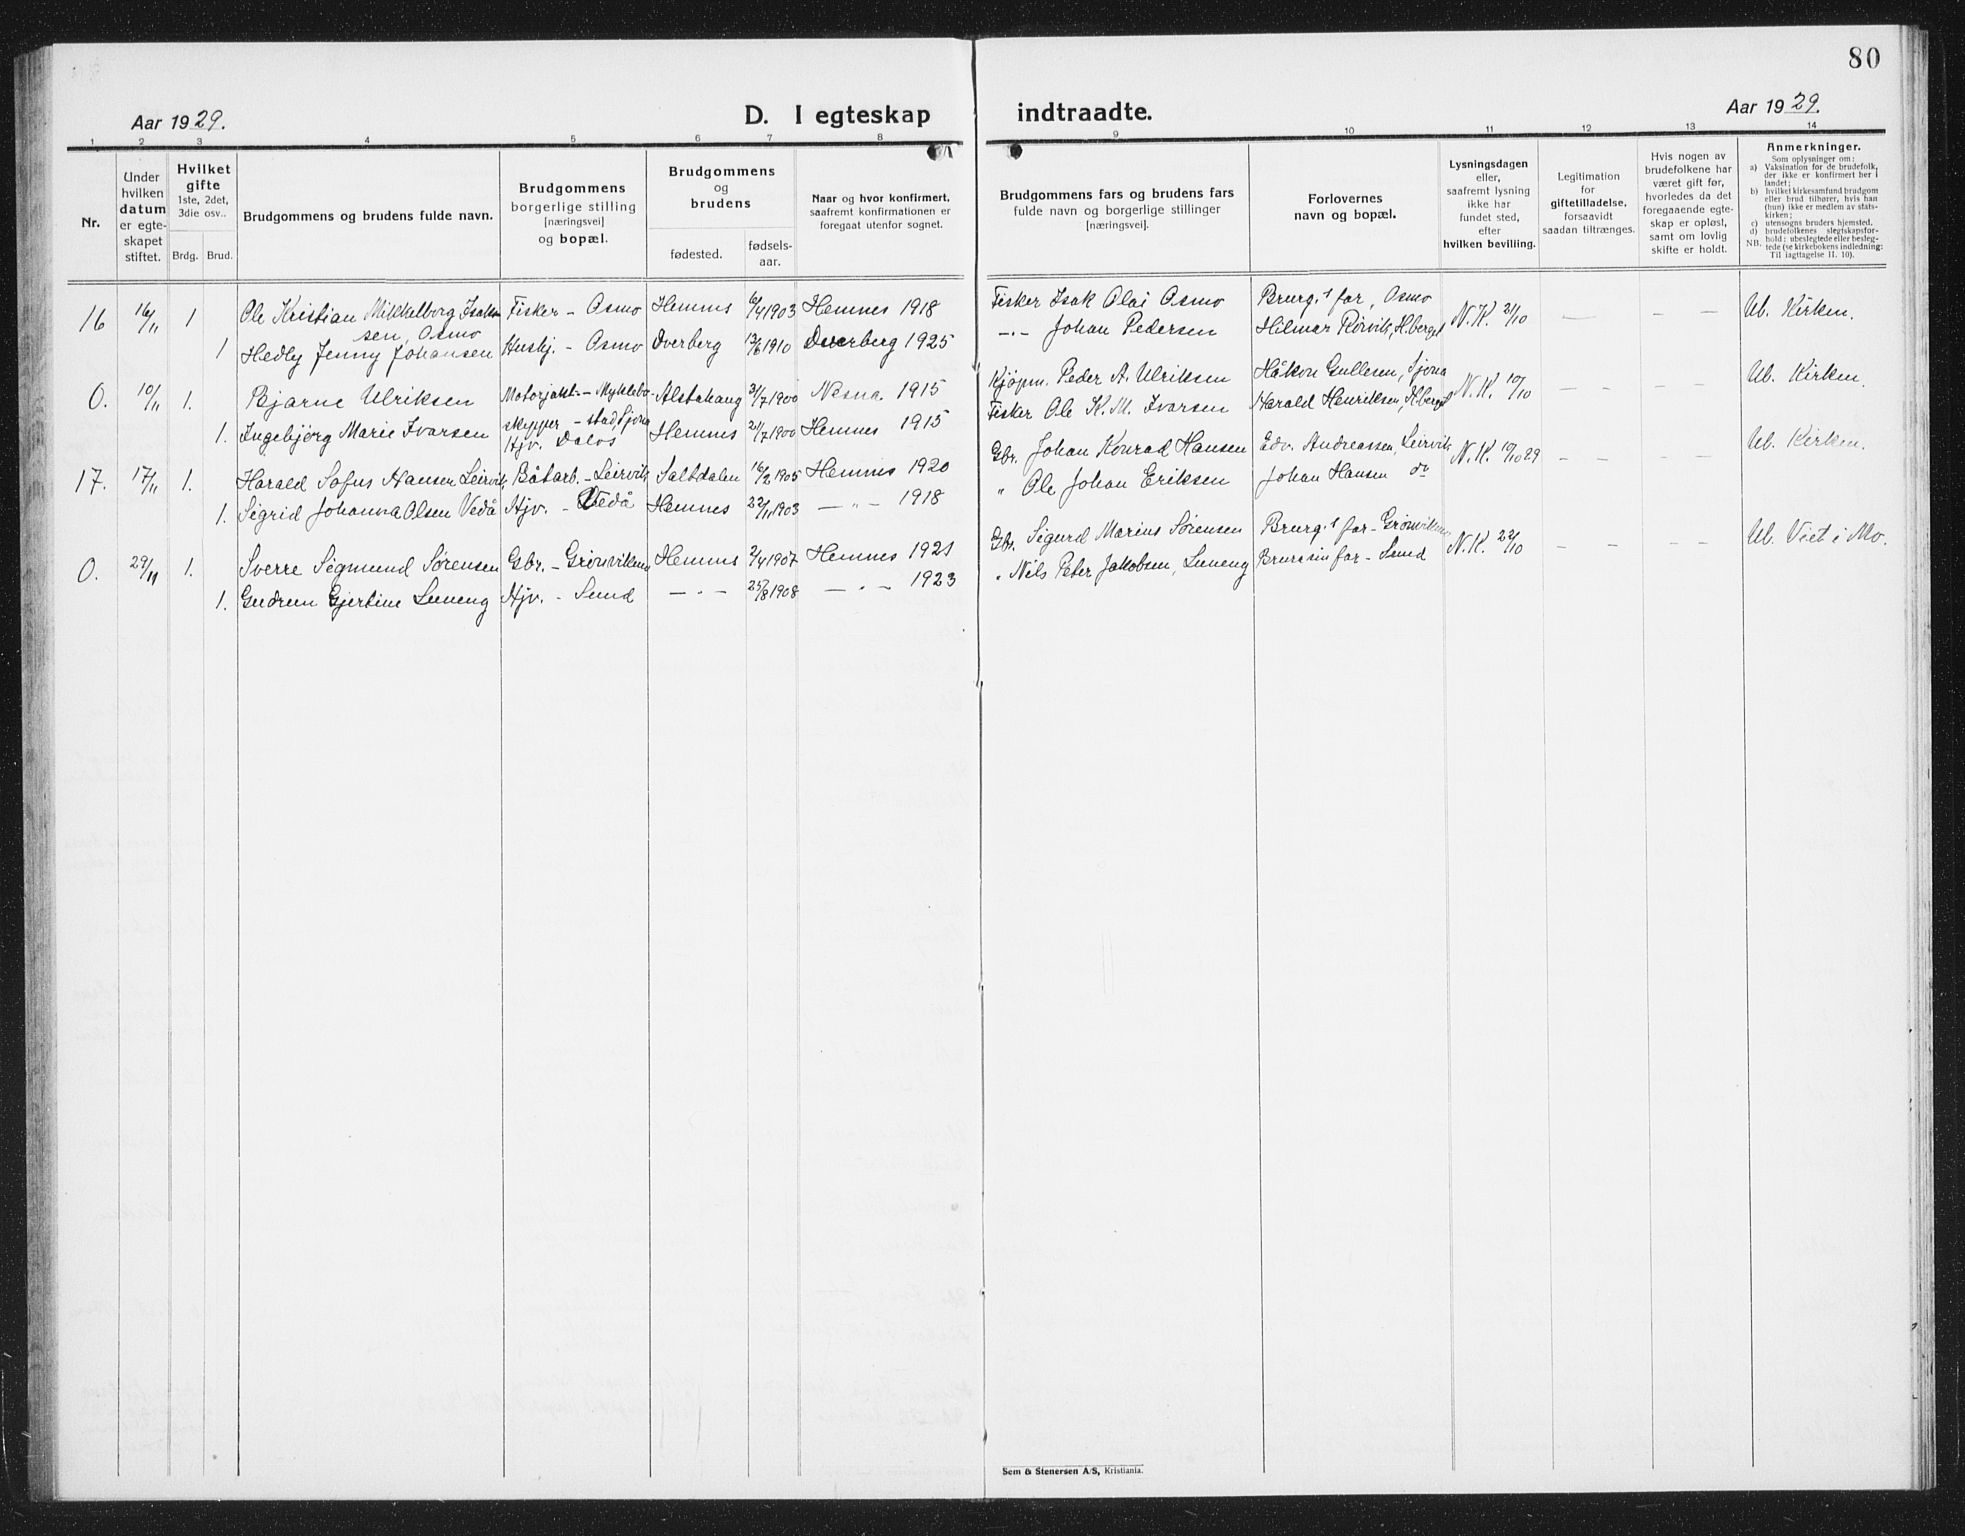 80
Aar 1929.
D. I egteskap indtraadte.
Aar 1929.
1 2 3 4 5 6 7 8 9 10 11 12 13 14
Nr.
Under hvilken datum er egteskapet stiftet.
Hvilket gifte 1ste, 2det, 3die osv..
Brdg. Brud.
Brudgommens og brudens fulde navn.
Brudgommens borgerlige stilling [næringsvei] og bopæl.
Brudgommens og brudens
fødested. fødsels-aar.
Naar og hvor konfirmert, saafremt konfirmationen er foregaat utenfor sognet.
Brudgommens fars og brudens fars fulde navn og borgerlige stillinger [næringsvei].
Forlovernes navn og bopæl.
Lysningsdagen eller, saafremt lysning ikke har fundet sted, efter hvilken bevilling.
Legitimation for giftetilladelse, forsaavidt saadan tiltrænges.
Hvis nogen av brudefolkene har været gift før, hvorledes da det foregaaende egteskap er opløst, samt om lovlig skifte er holdt.
Anmerkninger.
Som oplysninger om:
a) Vaksination for de brudefolk, der ikke er konfirmert her i landet;
b) hvilket kirkesamfund brudgom eller brud tilhører, hvis han (hun) ikke er medlem av statskirken;
c) utensogns bruders hjemsted.
d) brudefolkenes slegtskapsforhold: ubeslegtede eller beslegtede (se kirkebokens indledning: NB. Til iagttagelse II. 10).
16 16/11 1 Ole Kristian Mikkelborg Isaksen, Osmo Fisker - Osmo Hemnes 6/4 1903 Hemnes 1918 Fisker Isak Olai Osmo Brurg.s far, Osmo N.K. 21/10 — — — Ub. Kirken.
1 Hedly Jenny Johansen Hushj. - Osmo Dverberg 1910 Dverberg 1925 -"- Johan Pedersen Hilmar Rørvik, H.berget
O. 10/11 1. Bjarne Ulriksen Motorjakt- - Myklebostad, Sjona skipper Alstahaug 31/7 1900 Nesna 1915 Kjøpm. Peder A. Ulriksen Håkon Gullesen, Sjona N.K. 10/10 — — — Ub. Kirken.
1. Ingebjørg Marie Ivarsen Hjv. Dalos Hemnes 21/7 1900 Hemnes 1915 Fisker Ole K. M. Ivarsen Harald Henriksen, H.berget
17. 17/11 1. Harald Sofus Hansen Leirvik Båtarb. - Leirvik Saltdalen 16/2 1905 Hemnes 1920 Gbr. Johan Konrad Hansen Edv. Andreassen, Leirvik N.K. 10/10 29 — — — Ub. Kirken.
1. Sigrid Johanna Olsen Vedå Hjv. - Vedå Hemnes 22/11 1903 — " — 1918 " Ole Johan Eriksen Johan Hansen do
O. 29/11 1. Sverre Sigmund Sørensen Gbr. - Grønvikmo Hemnes 2/4 1907 Hemnes 1921 Gbr. Sigurd Marius Sørensen Brurg.s far - Grønvikmo N.K. 22/10 — — — Ub. Viet i Mo.
1. Gudrun Gjertine Luneng Hjv. - Sund — " — 25/8 1908 — " — 1923 " Nils Peter Jakobsen, Luneng Brura sin far - Sund
Sem & Stenersen A/S, Kristiania.